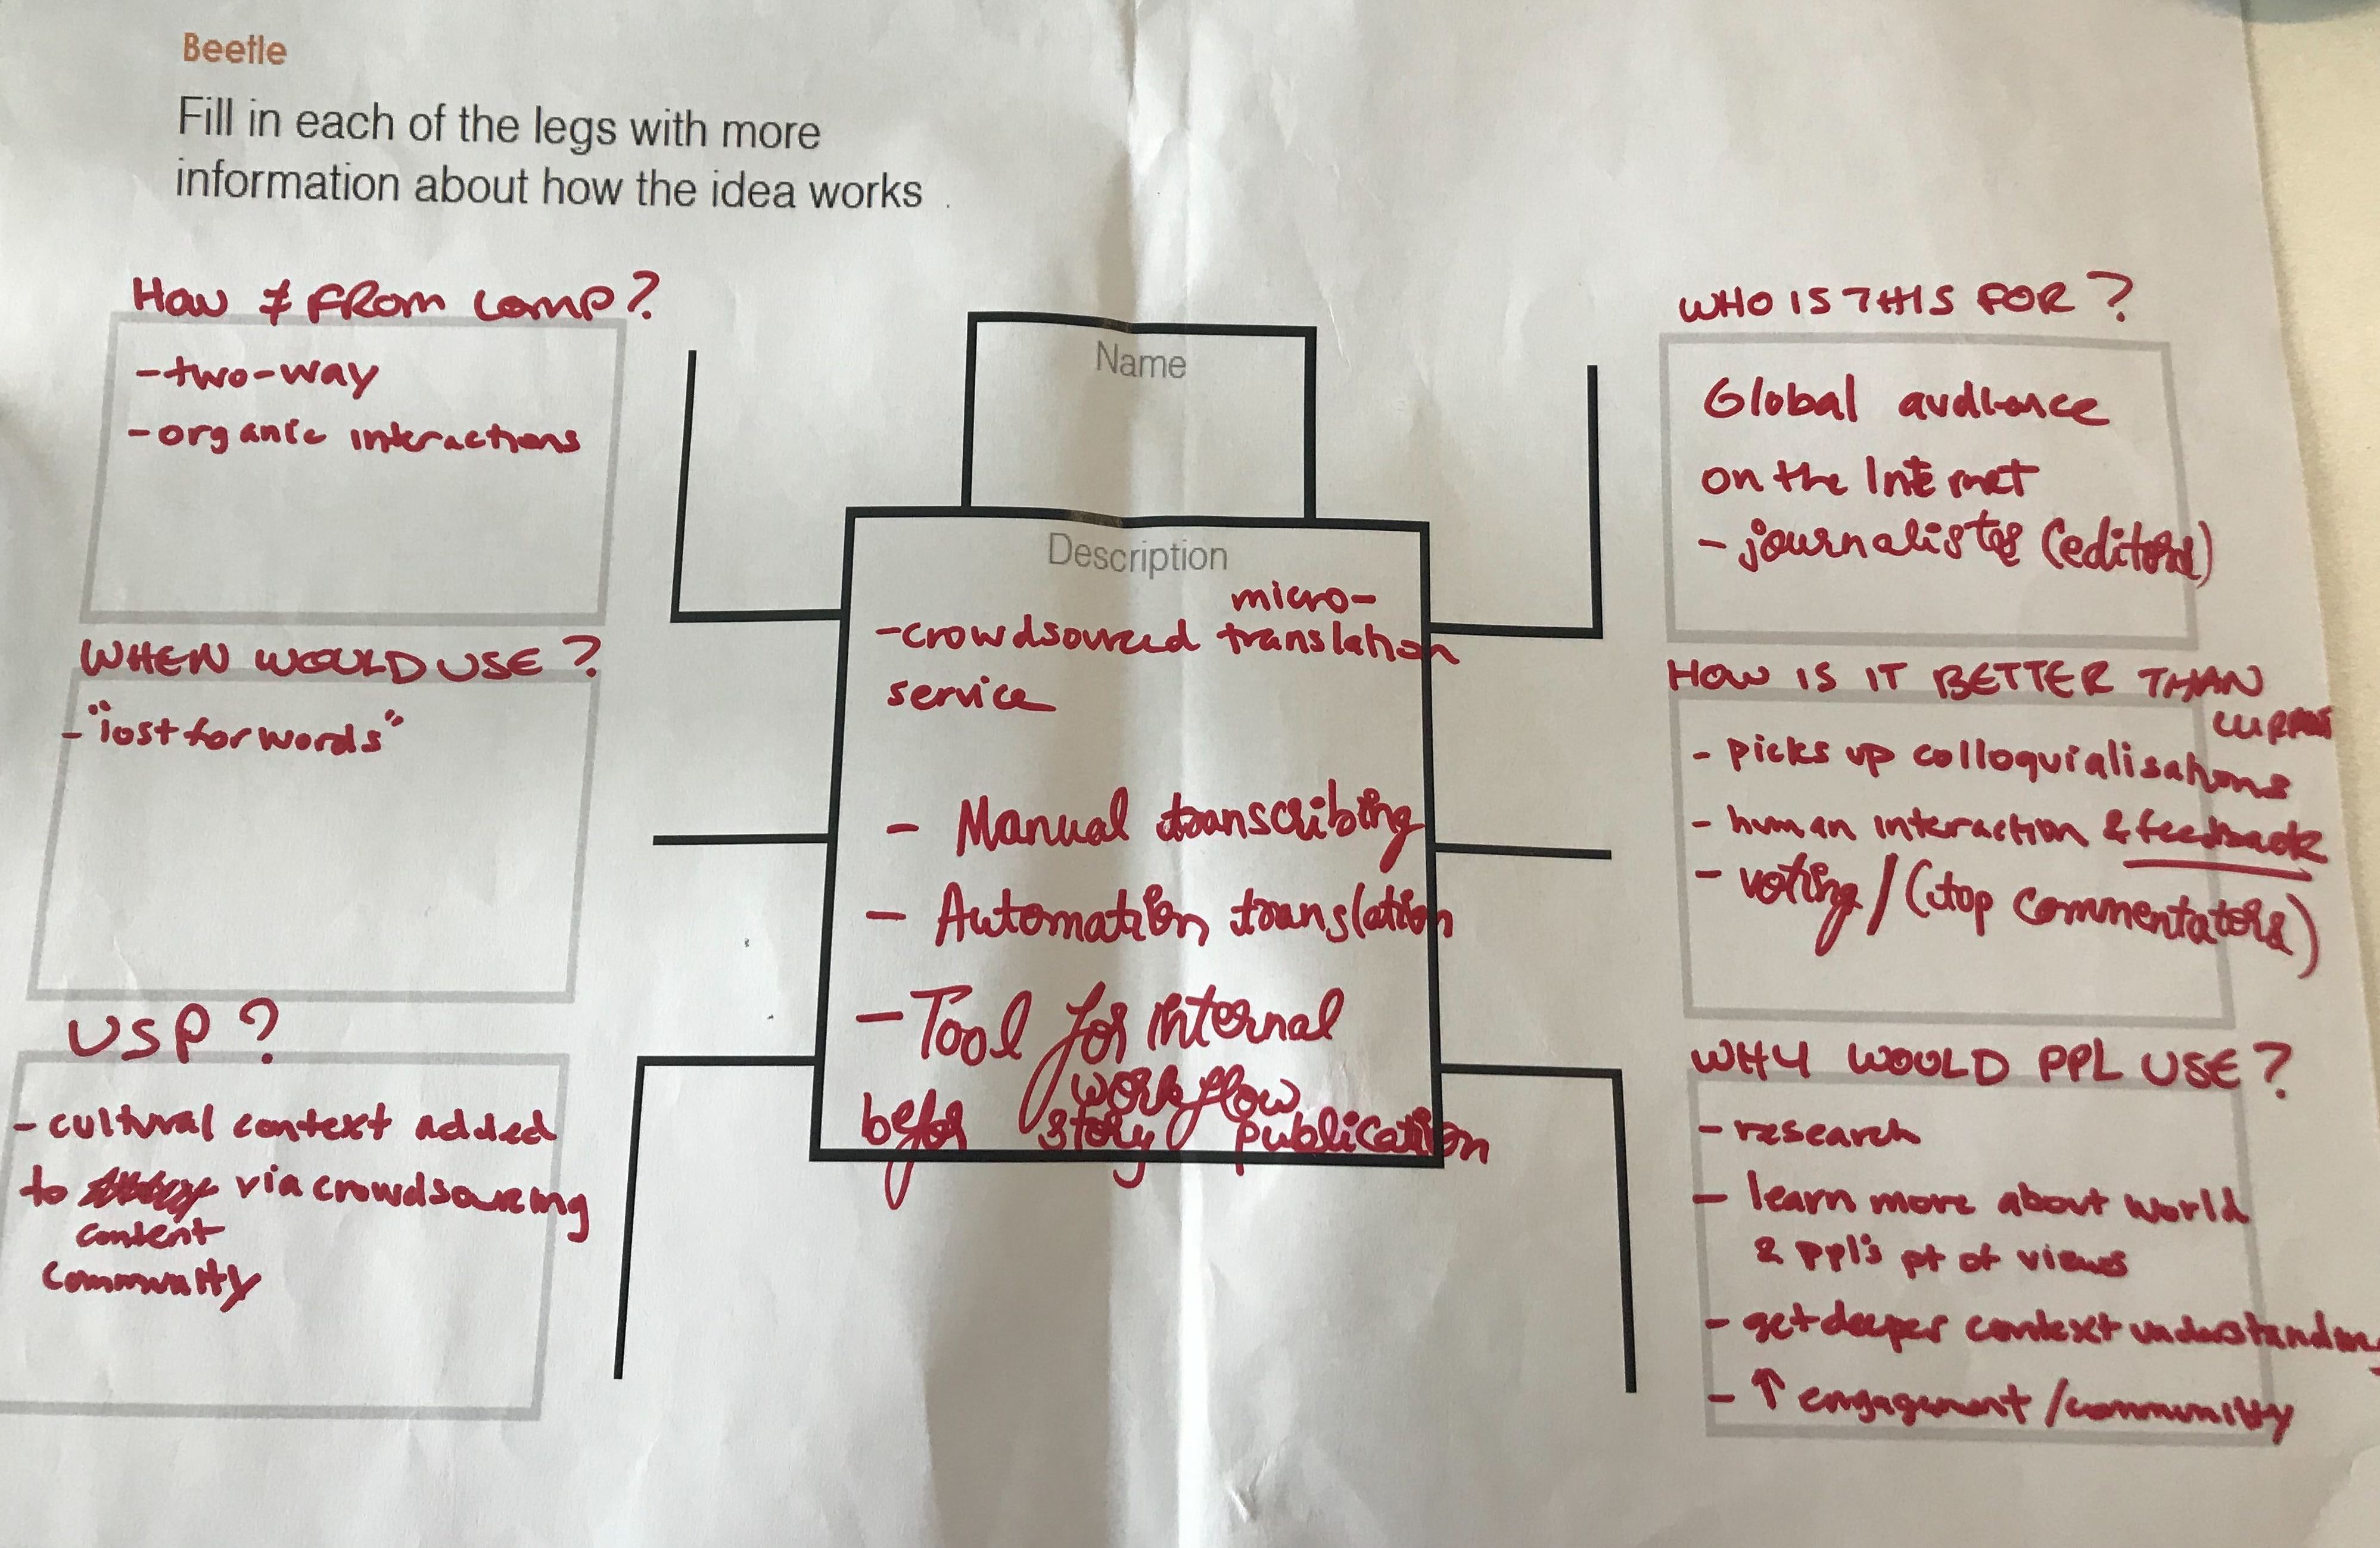 Beetle
Fill in each of the legs with more
information about how the idea works
HOW ≠ FROM COMP?
- two-way
- organic interactions
WHEN WOULD USE?
- "lost for words"
USP?
- cultural context added
to via crowdsourcing
content
community
Name
Description
micro-
- crowdsourced translation
service
- Manual transcribing
- Automation translation
- Tool for internal
workflow
befor story publication
WHO IS THIS FOR?
Global audience
on the Internet
- journalists (editors)
HOW IS IT BETTER THAN
CURRENT
- picks up colloquialisations
- human interaction & feedback
- voting / (top commentators)
WHY WOULD PPL USE?
- research
- learn more about world
& ppl's pt of views
- get deeper context understanding
- ↑ engagement / community